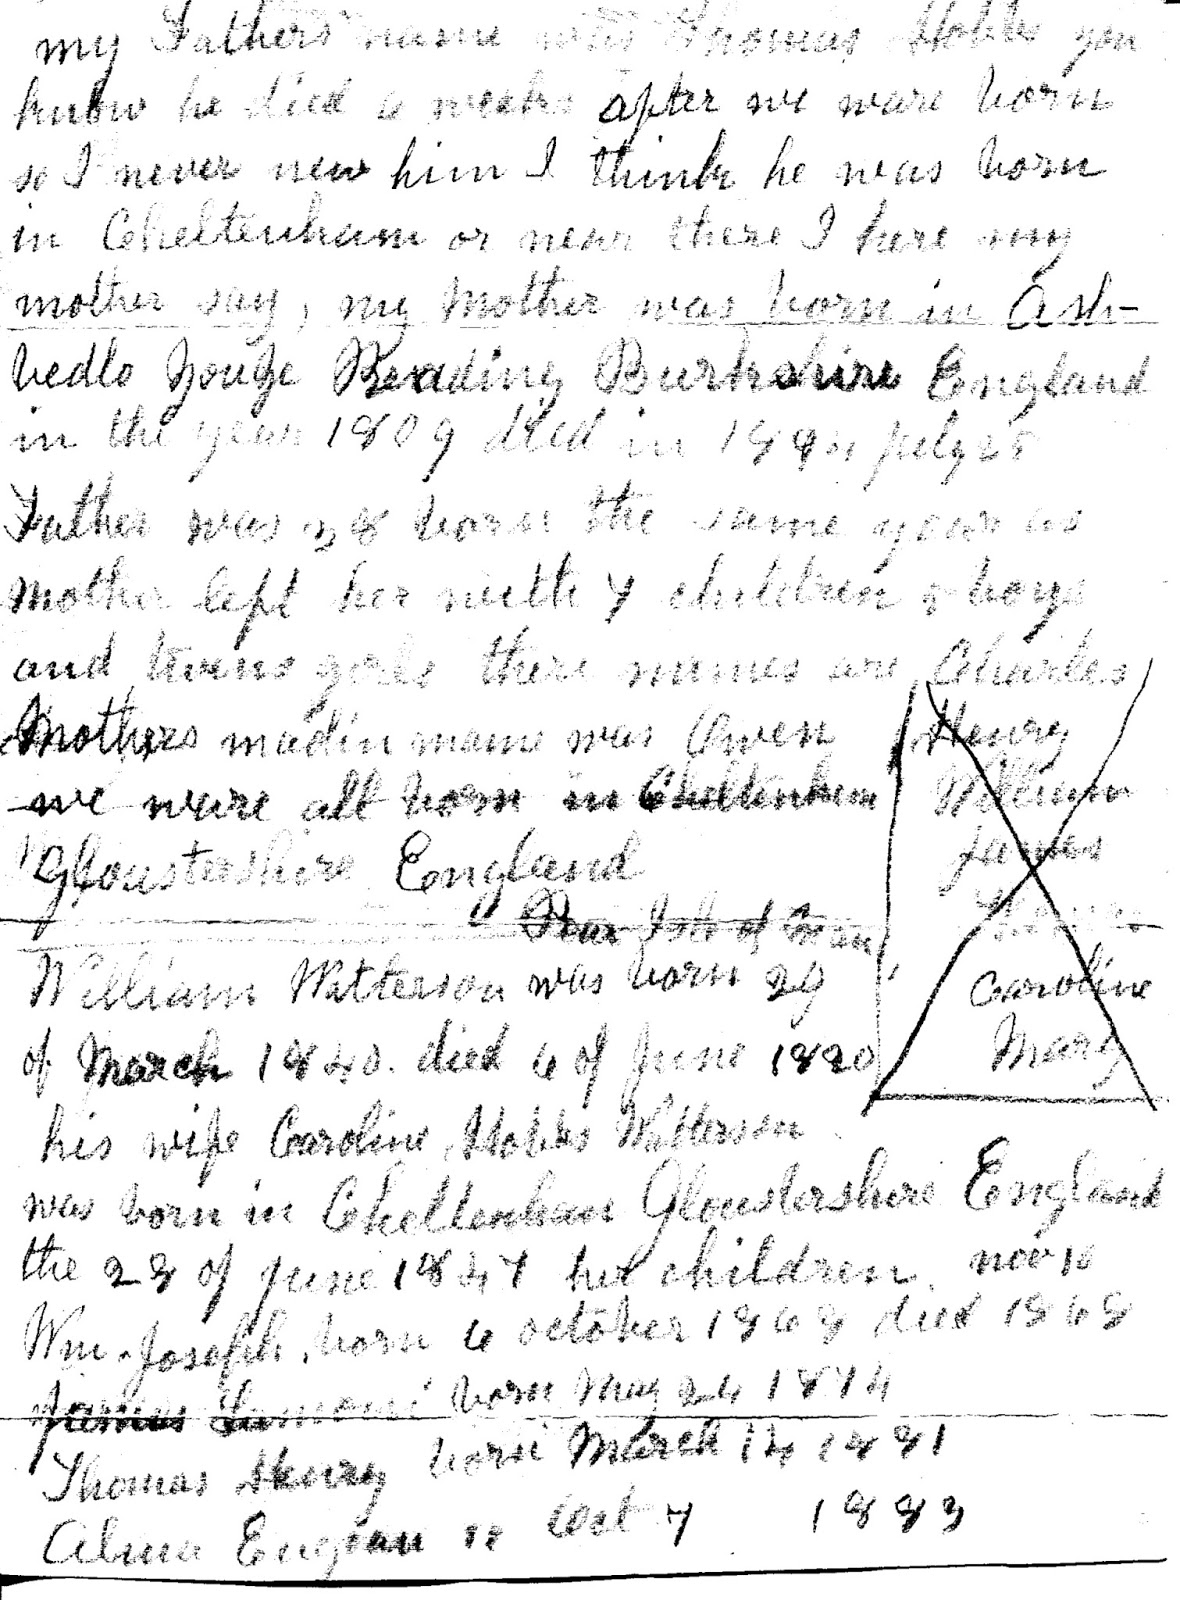 my Fathers name was Thomas Hobbs you
know he died 6 weeks after we ware born
so I never new him I think he was born
in Cheltenham or near there I here my
mother say, my Mother was born in Ash-
Reading Burkshire England
in the year 1809 died in
Father was 38 born the same year as
Mother left her with 7 children boys
and twins girls there names are Charles
Mothers madin name was Owen Henry
we were all born in Cheltenham William
Gloustershire England James
Isle of Man
William Watterson was born 29 Caroline
of March 1840. died 6 of June Mary
his wife Caroline Hobbs Watterson
was born in Cheltenham Gloustershire England
the 23 of June 1847 her children. nov 10
Wm. Joseph. born 6 october 1868 died 1868
James born May 24 1874
Thomas Henry born March 14 1881
Alma Oct 7 1883